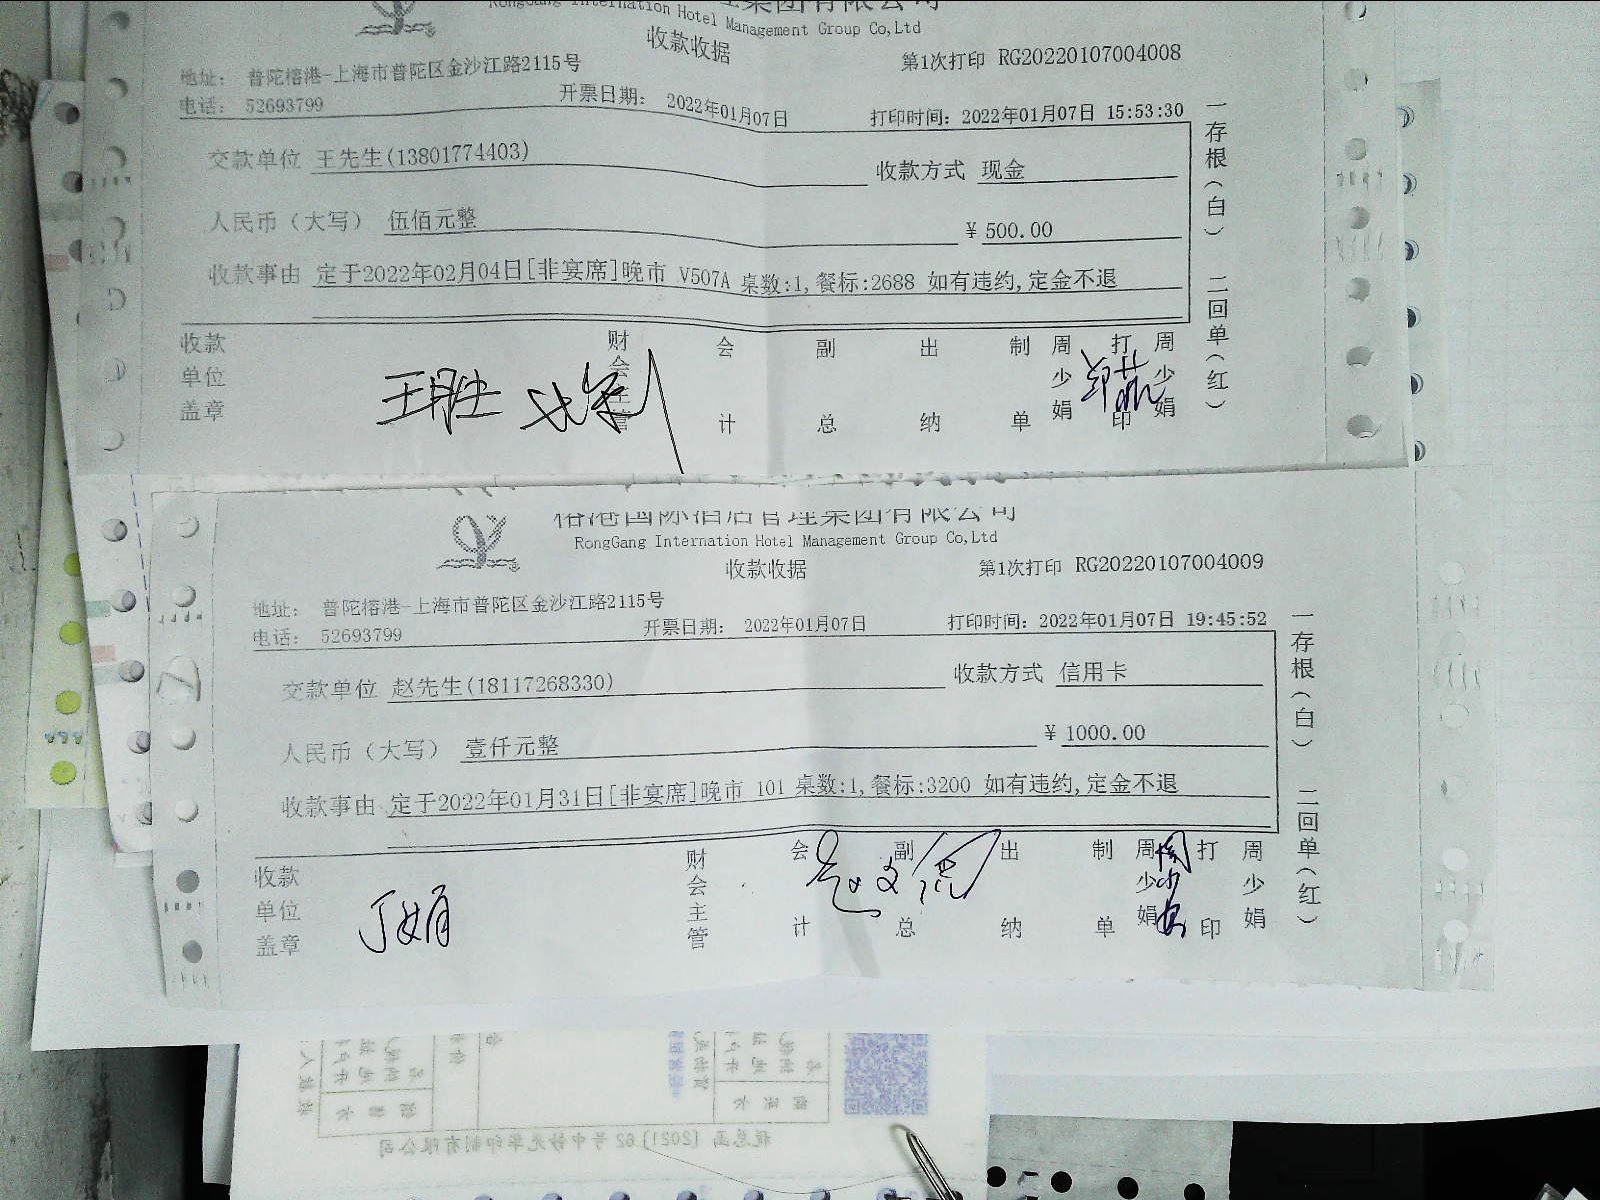 集团有限公司
RongGang Internation Hotel Management Group Co,Ltd
收款收据
第1次打印 RG20220107004008
地址: 普陀榕港-上海市普陀区金沙江路2115号
电话: 52693799
开票日期: 2022年01月07日
打印时间: 2022年01月07日 15:53:30
交款单位 王先生(13801774403)
收款方式 现金
人民币(大写) 伍佰元整
¥ 500.00
收款事由 定于2022年02月04日[非宴席]晚市 V507A 桌数:1,餐标:2688 如有违约,定金不退
一存根(白) 二回单(红)
收款单位盖章
王胜
财会主管
会计
副总
出纳
制单
周少娟
打印
周少娟
榕港国际酒店管理集团有限公司
RongGang Internation Hotel Management Group Co,Ltd
收款收据
第1次打印 RG20220107004009
地址: 普陀榕港-上海市普陀区金沙江路2115号
电话: 52693799
开票日期: 2022年01月07日
打印时间: 2022年01月07日 19:45:52
交款单位 赵先生(18117268330)
收款方式 信用卡
人民币(大写) 壹仟元整
¥ 1000.00
收款事由 定于2022年01月31日[非宴席]晚市 101 桌数:1,餐标:3200 如有违约,定金不退
一存根(白) 二回单(红)
收款单位盖章
丁娟
财会主管
会计
副总
出纳
制单
周少娟
打印
周少娟